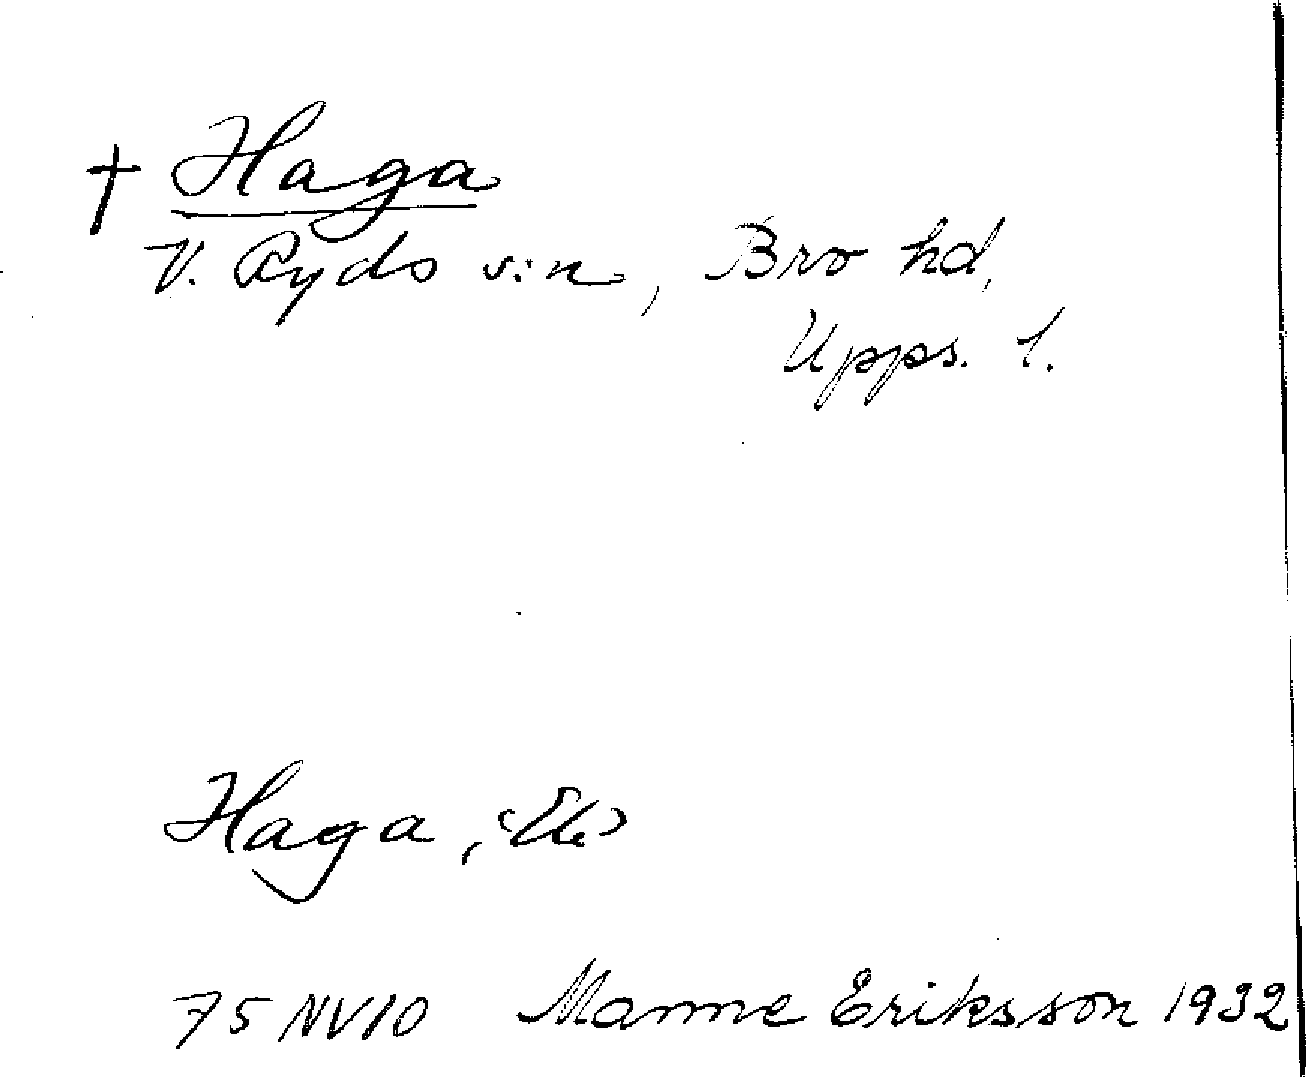 † Haga
V. Ryds s:n, Bro hd,
Upps. l.
Haga, (Ek)
75 NV10 Manne Eriksson 1932